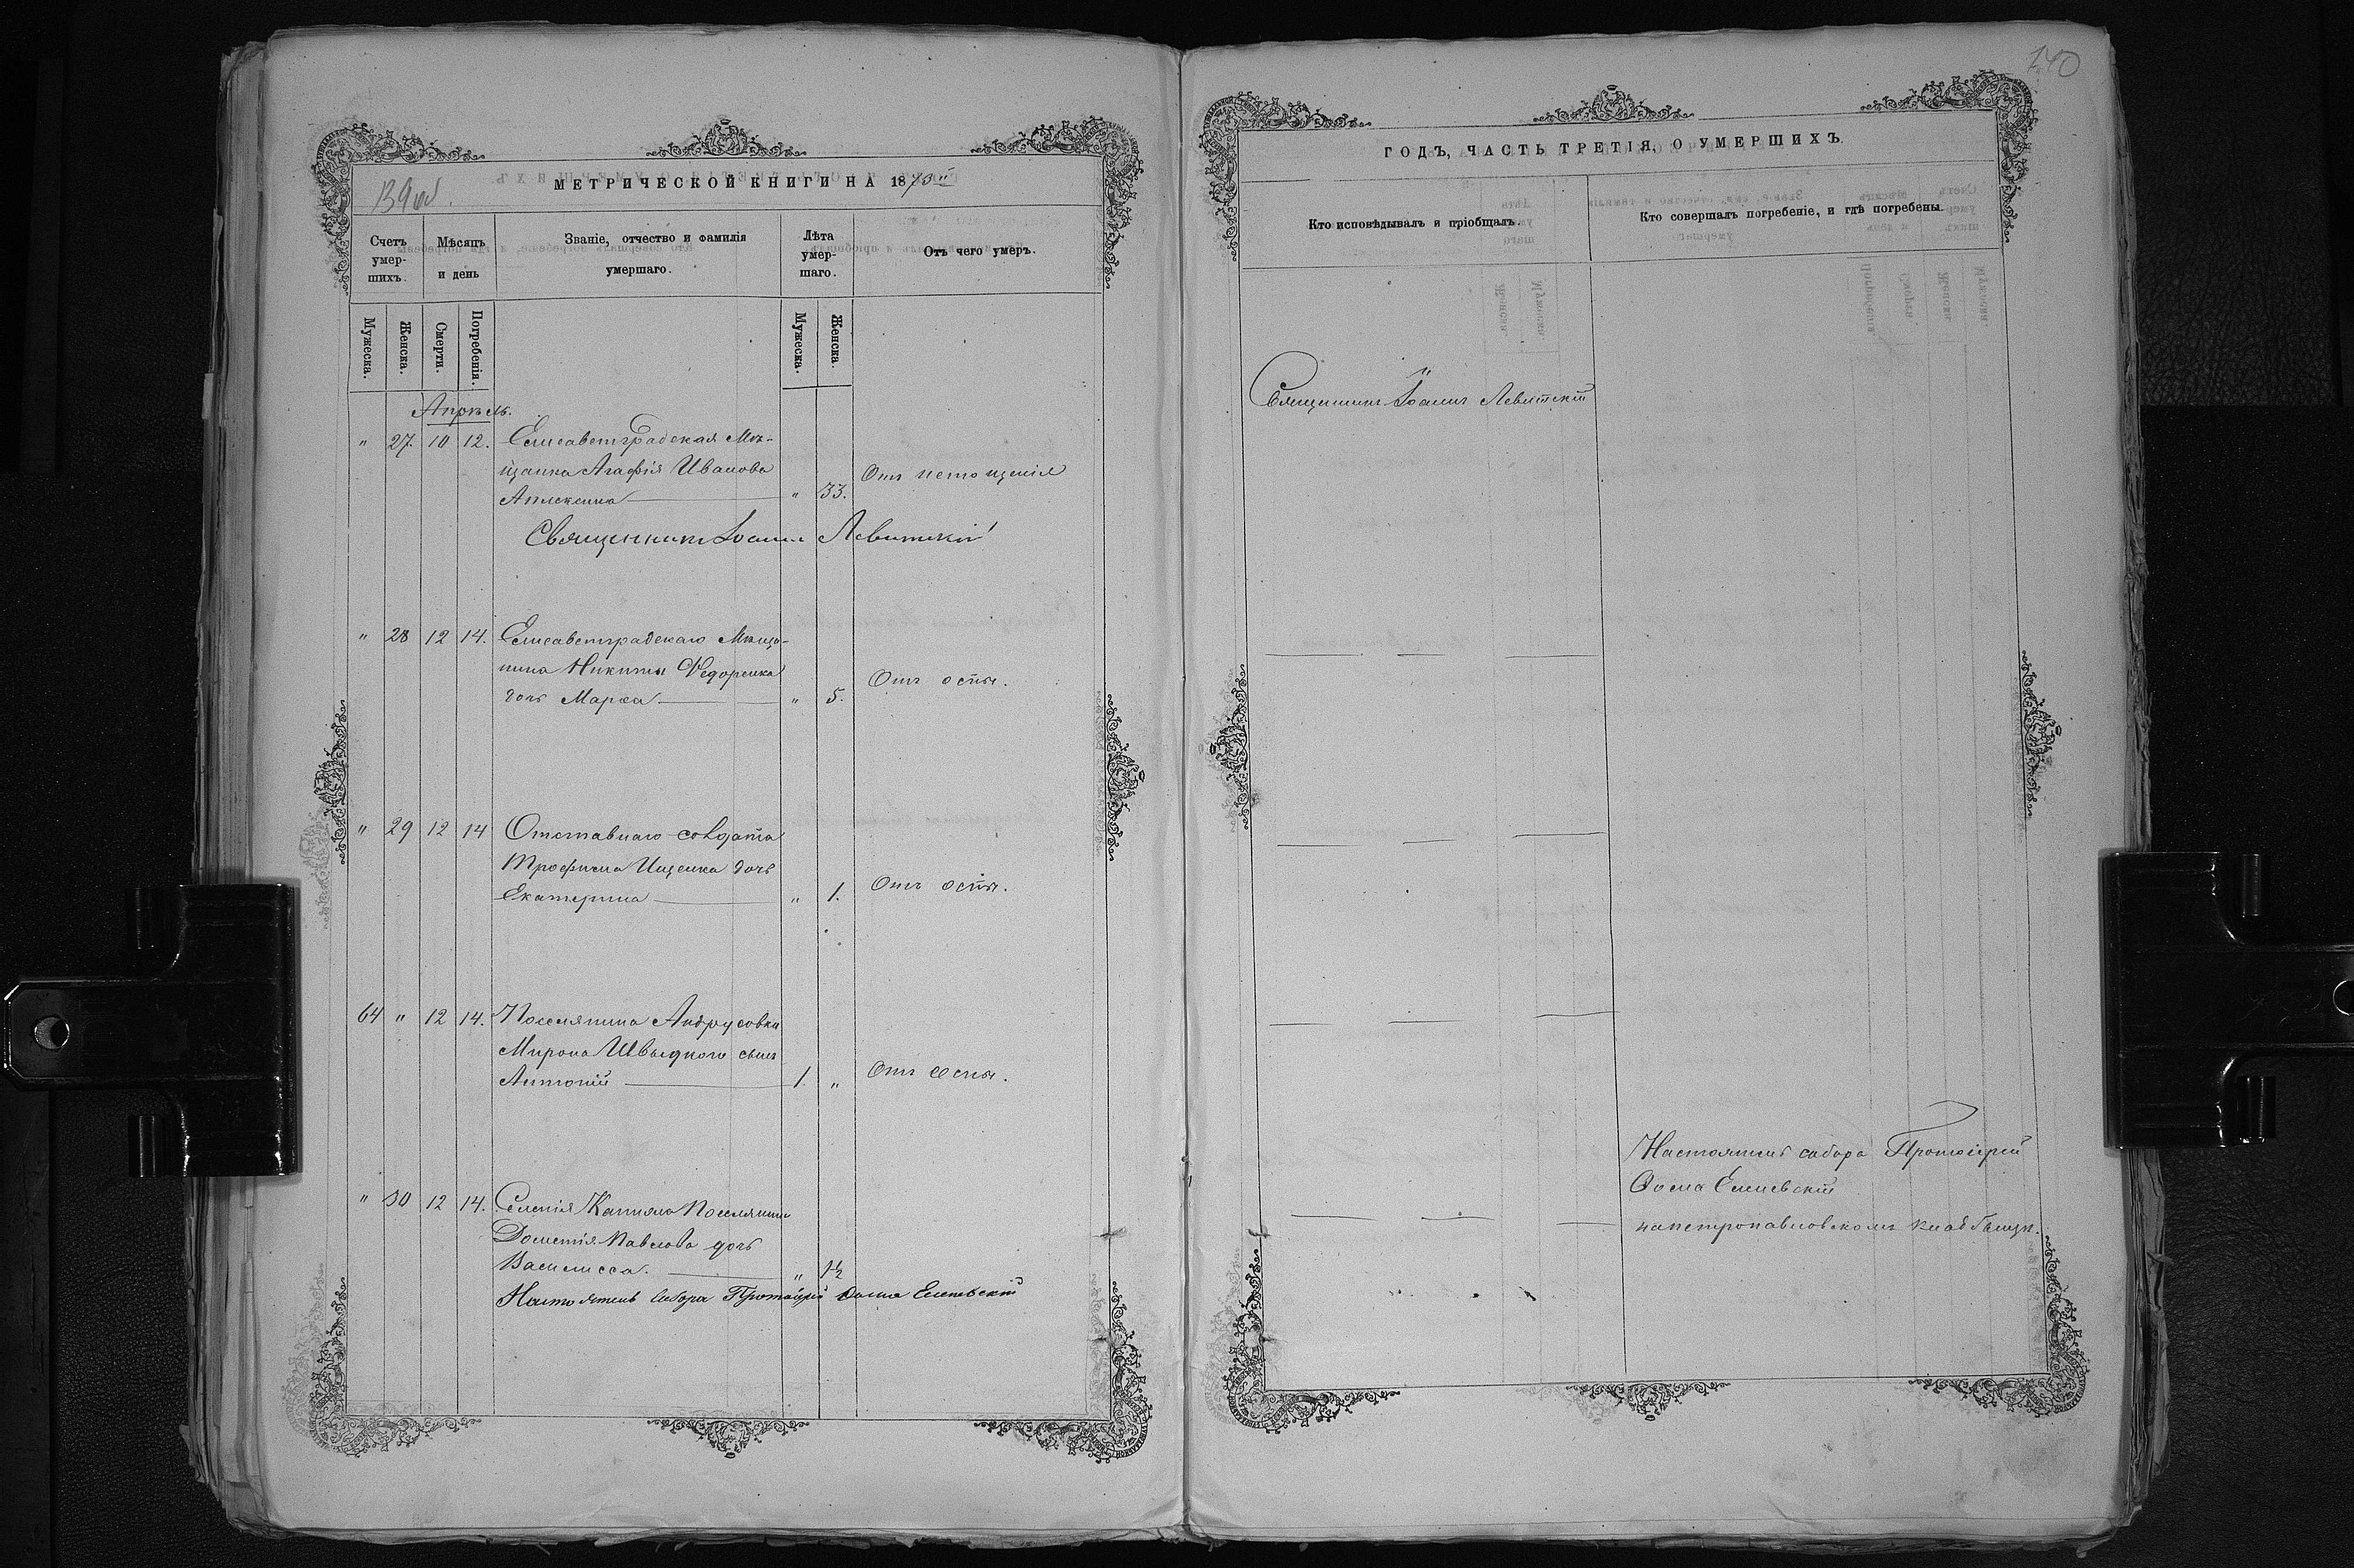 139 об.
МЕТРИЧЕСКОЙ КНИГИ НА 1870й
Счетъ умер- шихъ.
Мѣсяцъ и день
Званіе, отчество и фамилія умершаго.
Лѣта умер- шаго.
Отъ чего умеръ.
Мужеска.
Женска.
Смерти.
Погребенія.
Мужеска.
Женска.
Апрѣль.
" 27. 10 12. Елисаветградская Мѣ-
щанка Агафія Иванова
" 33. Отъ истощенія
Священникъ Іоаннъ Левитскій
" 28 12 14. Елисаветградскаго Мѣща-
нина Никиты Ѳедоренка
дочь Марѳа " 5. Отъ оспы.
" 29 12 14 Отставнаго солдата
Трофима Ищенка дочь
Екатерина " 1. Отъ оспы.
64 " 12 14. Поселянина Андрусовки
Мирона Швыдкого сынъ
Антоній 1. " Отъ оспы.
" 30 12 14. Селенія Поселянина
Дометія Павлова дочь
Василисса. " 1½
Настоятель Собора Протоіерей Ѳома
140
ГОДЪ, ЧАСТЬ ТРЕТІЯ, О УМЕРШИХЪ.
Кто исповѣдывалъ и пріобщалъ.
Кто совершалъ погребеніе, и гдѣ погребены.
Священникъ Іоаннъ Левитскій
Настоятель собора Протоіерей
Ѳома
на петропавловскомъ кладбищѣ.